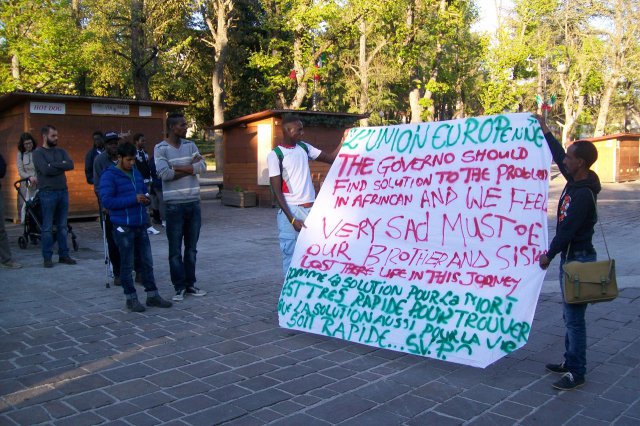 HOT DOG
L'EUNION EUROPEnne
THE GOVERNO SHOULD
FIND SOLUTION TO THE PROBLEM
IN AFRINCAN AND WE FEEL
VERY SAD MUST OF
OUR BROTHER AND SIS
LOST THERE LIFE IN THIS JORNEY
COMME LA SOLUTION POUR LA MORT
EST TRES RAPIDE POUR TROUVER
LA SOLUTION AUSSI POUR LA VIE
SOIT RAPIDE..